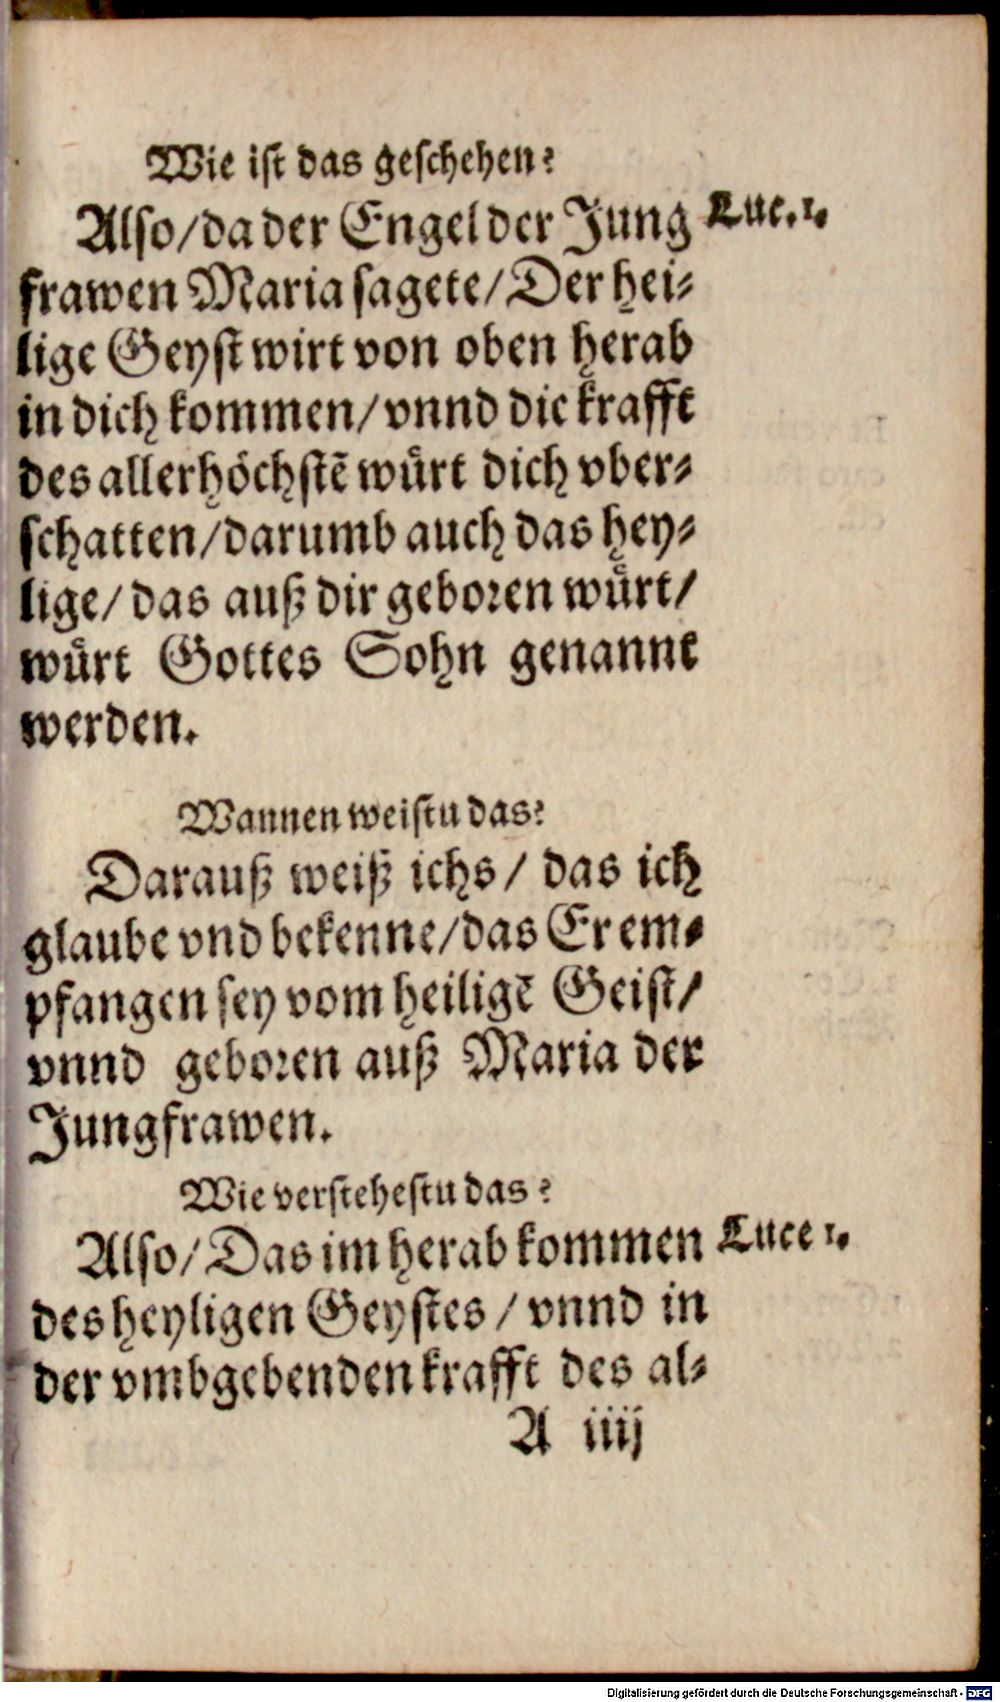 Wie ist das geschehen?
Also/da der Engel der Jung
Luc. 1.
frawen Maria sagete/Der hei-
lige Geyst wirt von oben herab
in dich kommen/vnnd die krafft
des allerhöchstē wuͤrt dich vber-
schatten/darumb auch das hey-
lige/das auß dir geboren wuͤrt/
wuͤrt Gottes Sohn genannt
werden.
Wannen weistu das?
Darauß weiß ichs/ das ich
glaube vnd bekenne/das Er em-
pfangen sey vom heiligē Geist/
vnnd geboren auß Maria der
Jungfrawen.
Wie verstehestu das?
Also/Das im herab kommen
Luce 1.
des heyligen Geystes/vnnd in
der vmbgebenden krafft des al-
A iiij
Digitalisierung gefördert durch die Deutsche Forschungsgemeinschaft - DFG